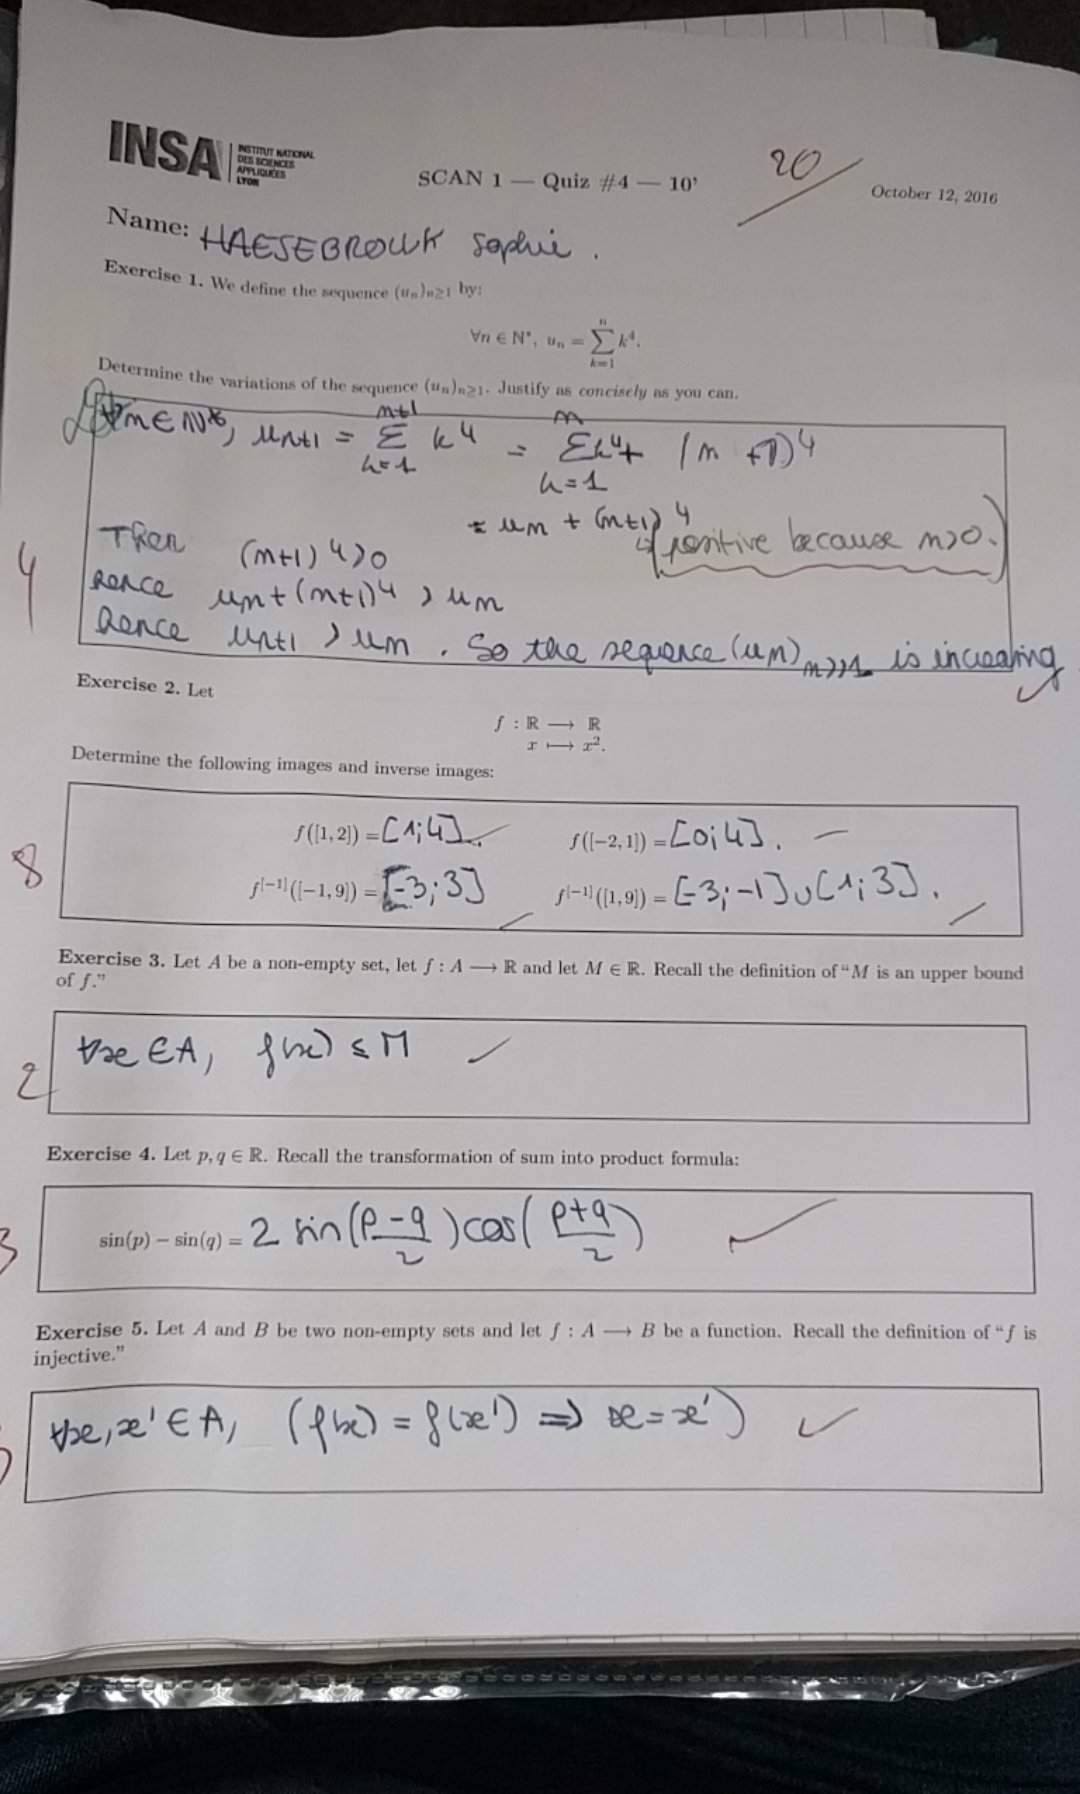 INSA INSTITUT NATIONAL DES SCIENCES APPLIQUÉES LYON
SCAN 1 — Quiz #4 — 10'
20/
October 12, 2016
Name: HAESEBROUCK Sophie.
Exercise 1. We define the sequence (uₙ)ₙ≥₁ by:
∀n ∈ N*, uₙ = ∑ₖ₌₁ⁿ k⁴.
Determine the variations of the sequence (uₙ)ₙ≥₁. Justify as concisely as you can.
∀n ∈ N*, uₙ₊₁ = ∑ₖ₌₁ⁿ⁺¹ k⁴ = ∑ₖ₌₁ⁿ k⁴ + (n+1)⁴
= uₙ + (n+1)⁴
↳ (positive because n>0.)
Then (n+1)⁴>0
Hence uₙ+(n+1)⁴ > uₙ
4
Hence uₙ₊₁ > uₙ. So the sequence (uₙ)ₙ≥₁ is increasing
Exercise 2. Let
f : ℝ ⟶ ℝ
x ⟼ x².
Determine the following images and inverse images:
f([1, 2]) = [1;4]. f([−2, 1]) = [0;4].
8
f[−1]([−1, 9]) = [-3;3] f[−1]([1, 9]) = [-3;-1]∪[1;3].
Exercise 3. Let A be a non-empty set, let f : A ⟶ ℝ and let M ∈ ℝ. Recall the definition of “M is an upper bound
of f.”
∀x ∈ A, f(x) ≤ M
2
Exercise 4. Let p, q ∈ ℝ. Recall the transformation of sum into product formula:
sin(p) − sin(q) = 2 sin((p-q)/2) cos((p+q)/2)
3
Exercise 5. Let A and B be two non-empty sets and let f : A ⟶ B be a function. Recall the definition of “f is
injective.”
∀x, x' ∈ A, (f(x) = f(x') ⇒ x = x')